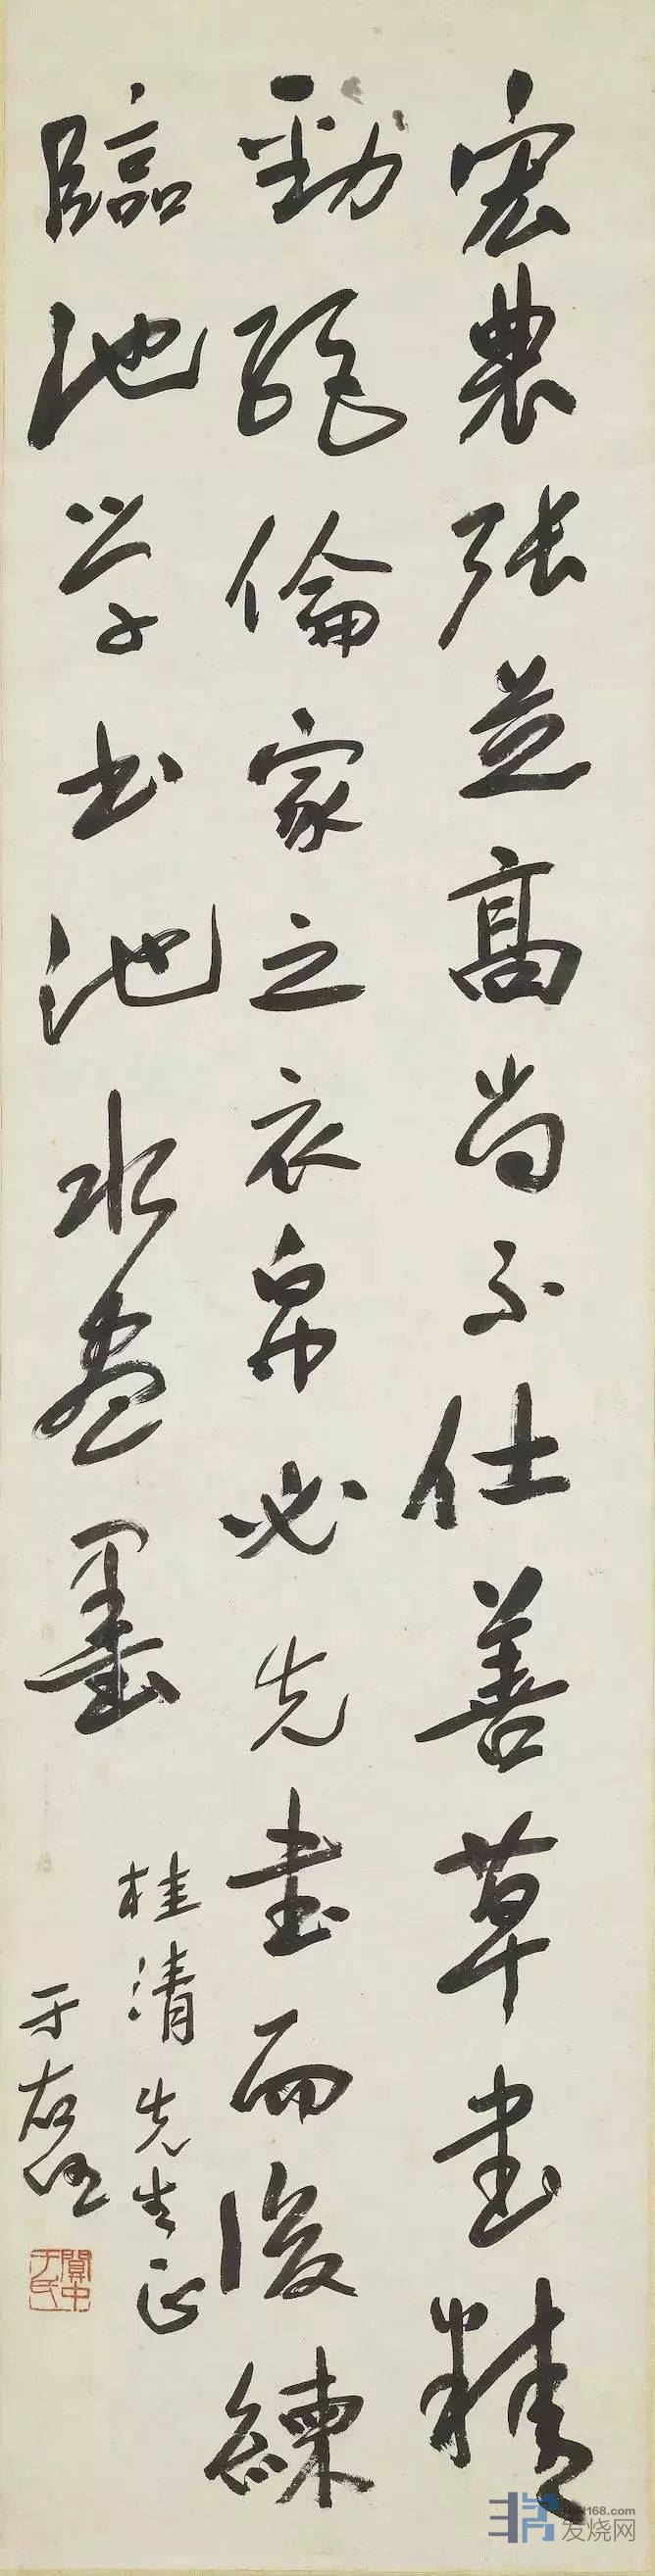 宏农张芝高尚不仕善草书精
劲绝伦家之衣帛必先书而后练
临池学书池水尽墨
桂清先生正
于右任
关中于氏
168.com
发烧网